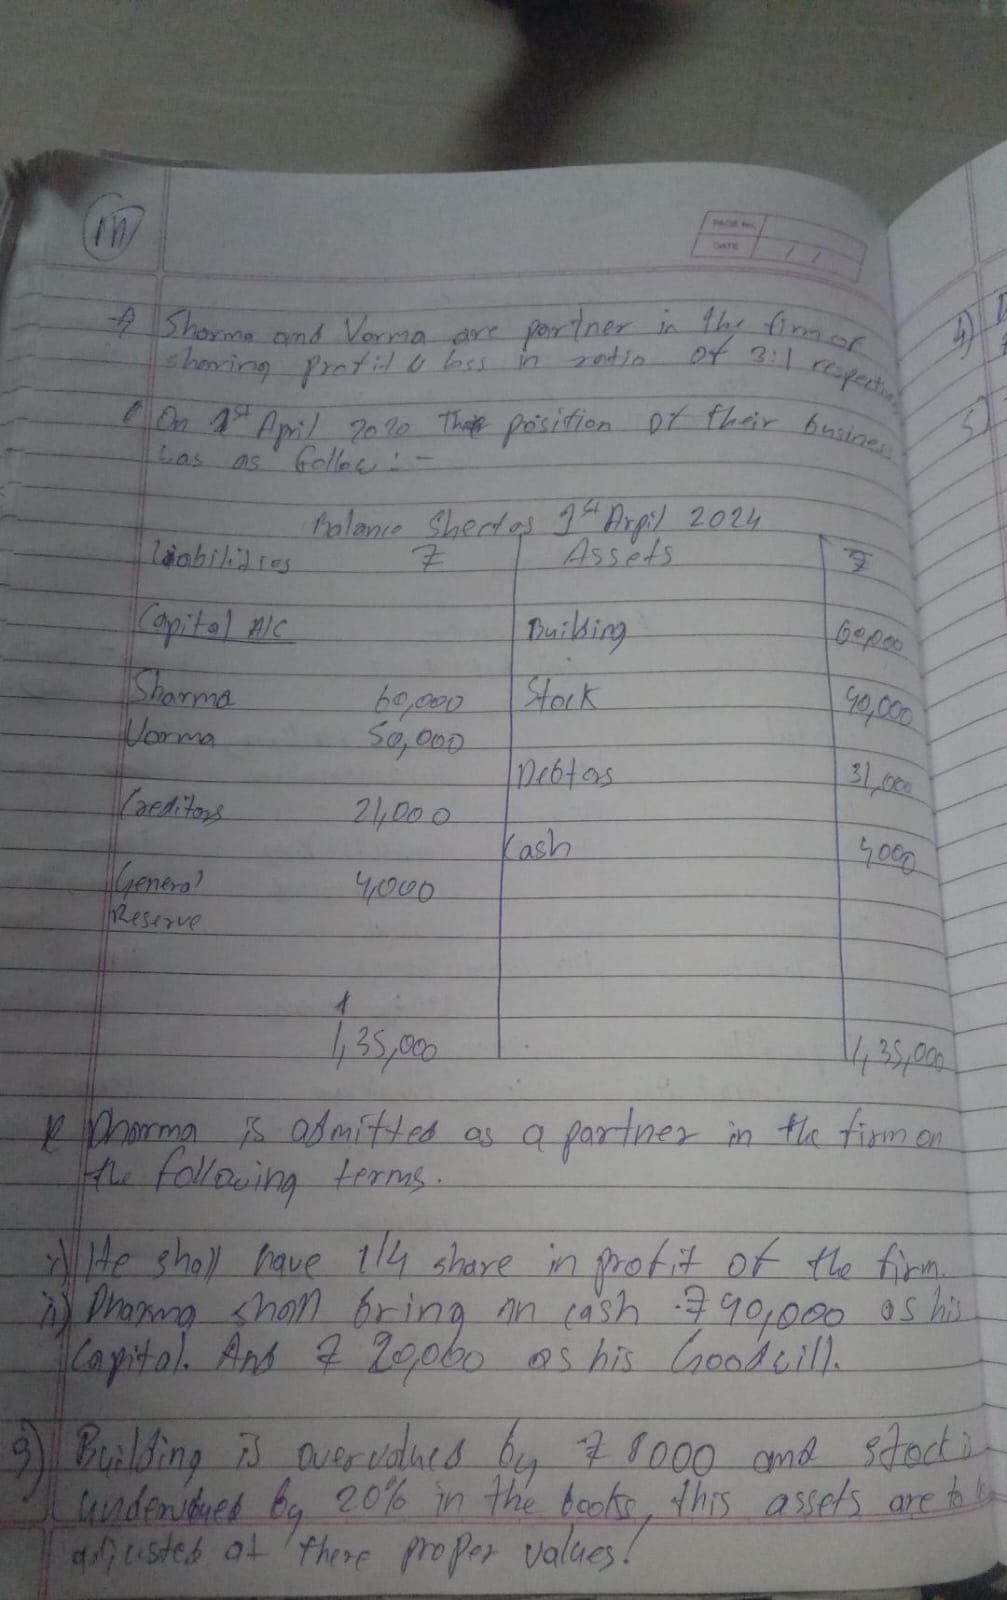 PAGE No.
DATE / /
Sharma and Varma are partner in the firm of
sharing profit & loss in ratio of 3:1
On 1st April 2020 position of their business
as follow :-
Balance Sheet as 1st Arpil 2024
Liabilities ₹ Assets ₹
Capital A/C Building 60,000
Sharma 60,000 Stock 40,000
Varma 50,000
Debtors 31,000
Creditors 21,000
Cash 4000
General 4,000
Reserve
1,35,000 1,35,000
Dharma is admitted as a partner in the firm on
the following terms.
i) He shall have 1/4 share in profit of the firm.
ii) Dharma shall bring in cash ₹ 40,000 as his
Capital. And ₹ 20,000 as his Goodwill.
3) Building is overvalued by ₹ 8000 and stock is
undervalued by 20% in the books, this assets are to
adjusted at there proper values!
4)
5)